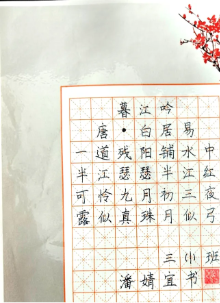 暮江吟
唐•白居易
一道残阳铺水中
半江瑟瑟半江红
可怜九月初三夜
露似真珠月似弓
三(1)班
潘婧宜书